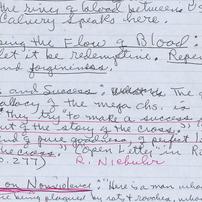 the river of blood between
Calvary speaks here.
ing the Flow of Blood:
let it be redemptive. Repen
and forgiveness.
s and Success: The g
alacy of the mega chs. is
they try to make a success
out of the story of the cross."
and pure goodness of perfect l
the cross." (Open Letter" in R
p. 277) R. Niebuhr
on Nonviolence: "Here is a man who
plagued by rats & roaches, wh